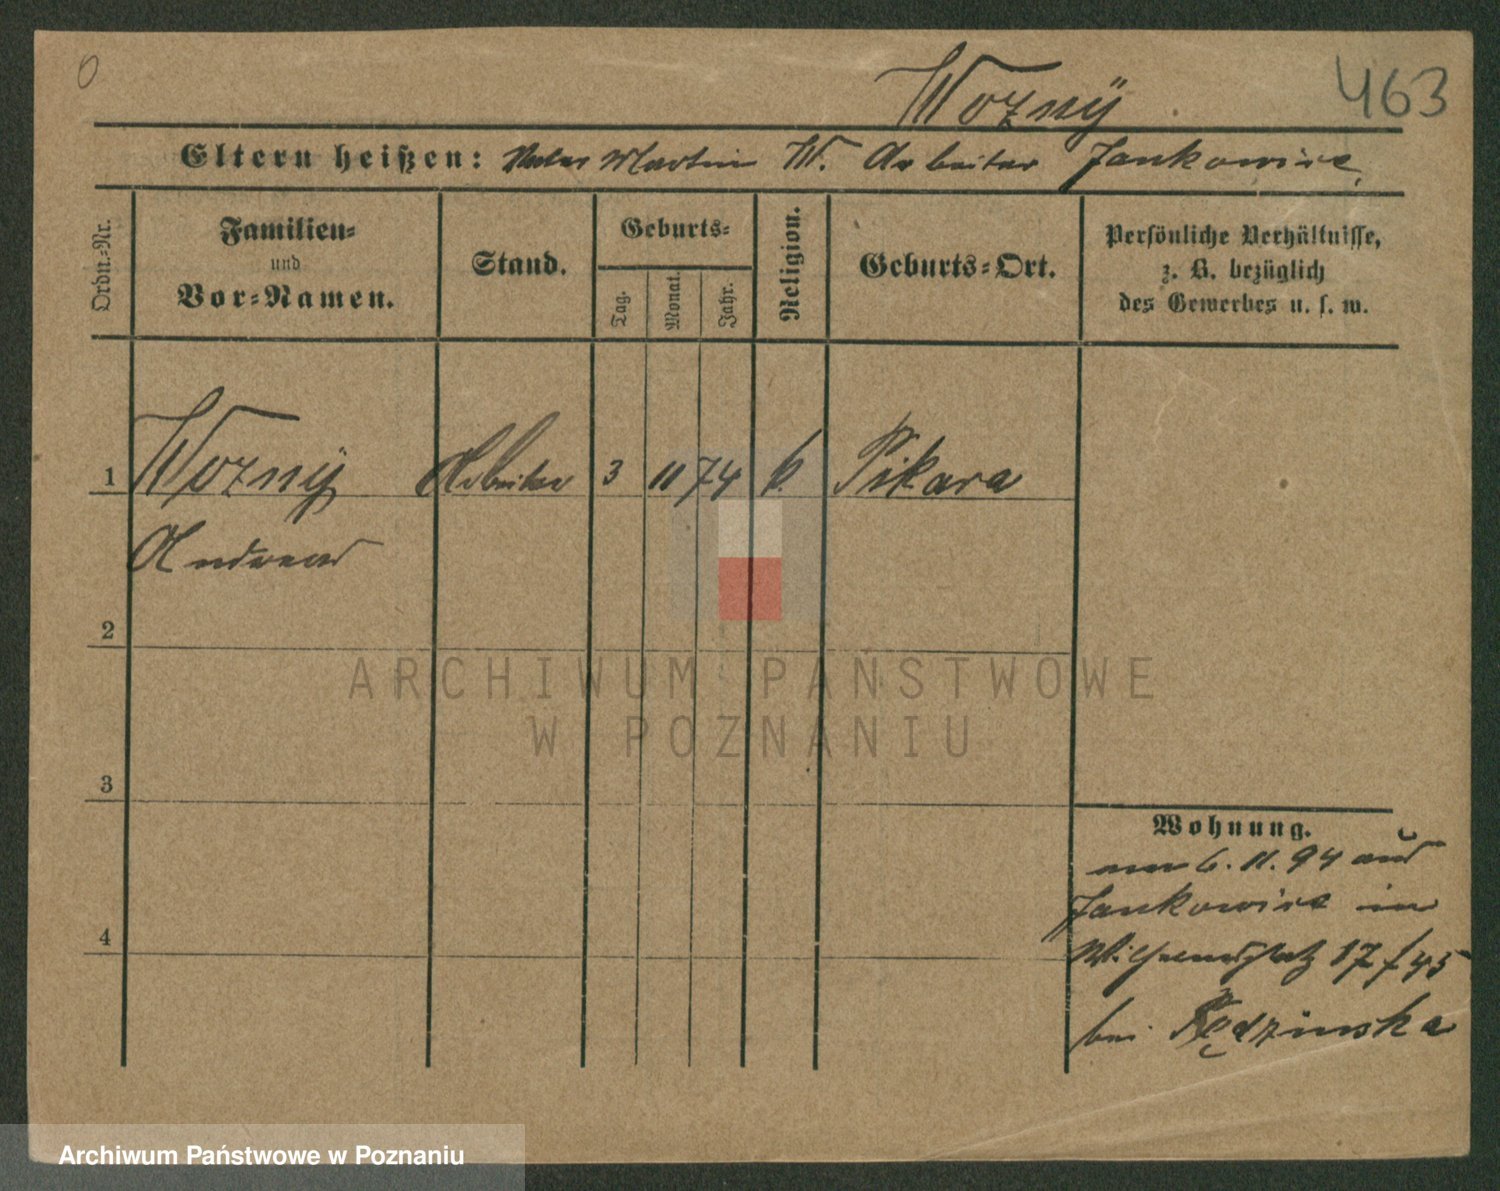 0
Wozny
463
Eltern heißen: Vater Martin W. Arbeiter Jankowice
Ordn.-Nr.
Familien-
und
Vor-Namen.
Stand.
Geburts-
Tag.
Monat.
Jahr.
Religion.
Geburts-Ort.
Persönliche Verhältnisse,
z. B. bezüglich
des Gewerbes u. s. w.
1 Wozny Arbeiter 3 11 74 k. Pikara
Andreas
2
3
4
Wohnung.
6. 11. 94 aus
Jankowice in
Wilhelmsplatz 17 f 45
bei Kędzinska
ARCHIWUM PAŃSTWOWE
W POZNANIU
Archiwum Państwowe w Poznaniu